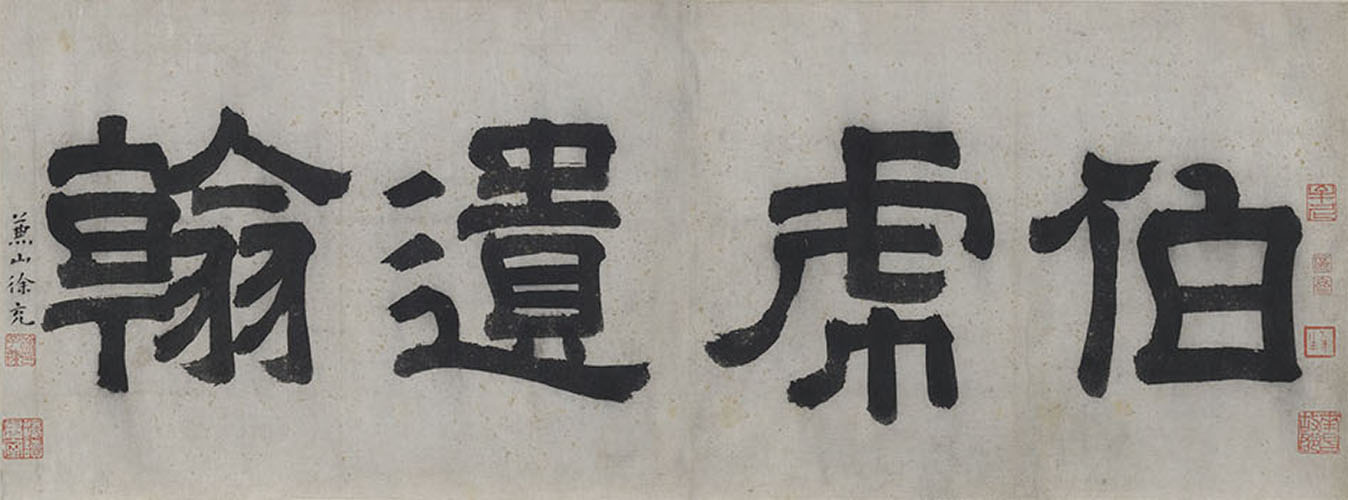 伯虎遺翰
兼山徐充